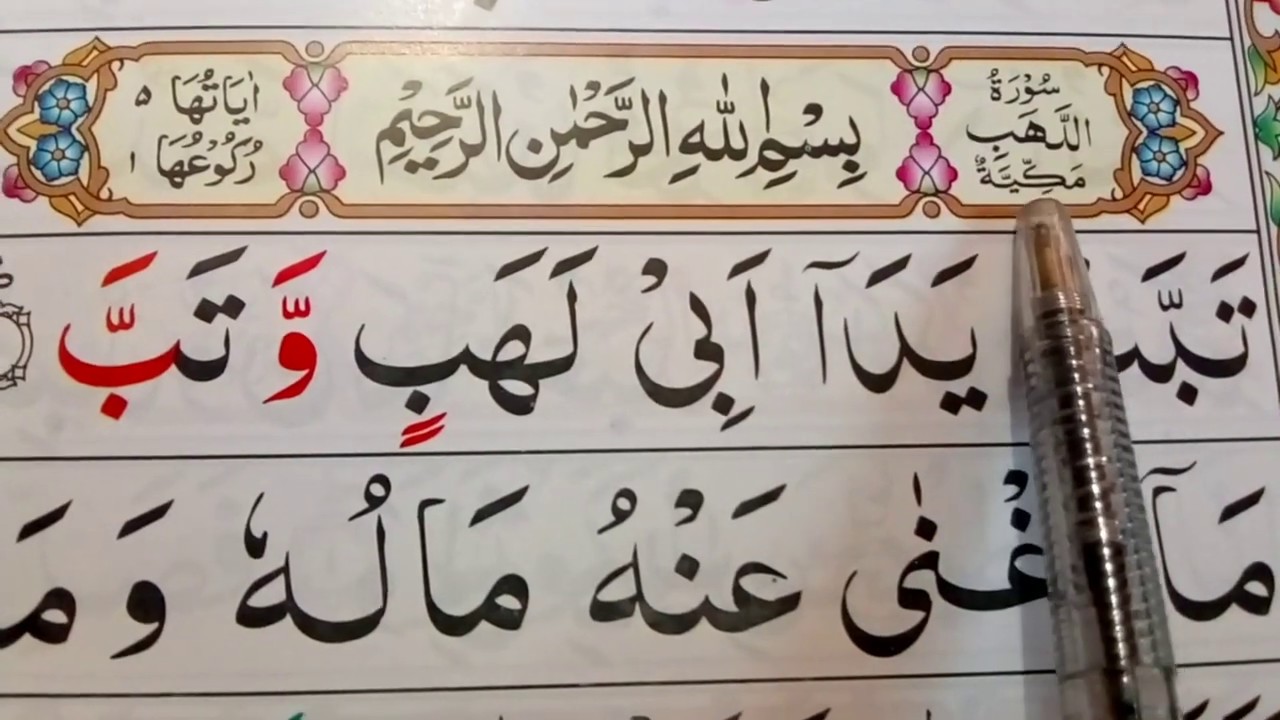 سُوْرَةُ
اللَّهَبِ
مَكِّيَّةٌ
بِسْمِ اللهِ الرَّحْمٰنِ الرَّحِيْمِ
اٰيَاتُهَا ٥
رُكُوْعُهَا ١
يَدَآ اَبِيْ لَهَبٍ وَّ تَبَّ
مَآ عَنْهُ مَالُهٗ وَ